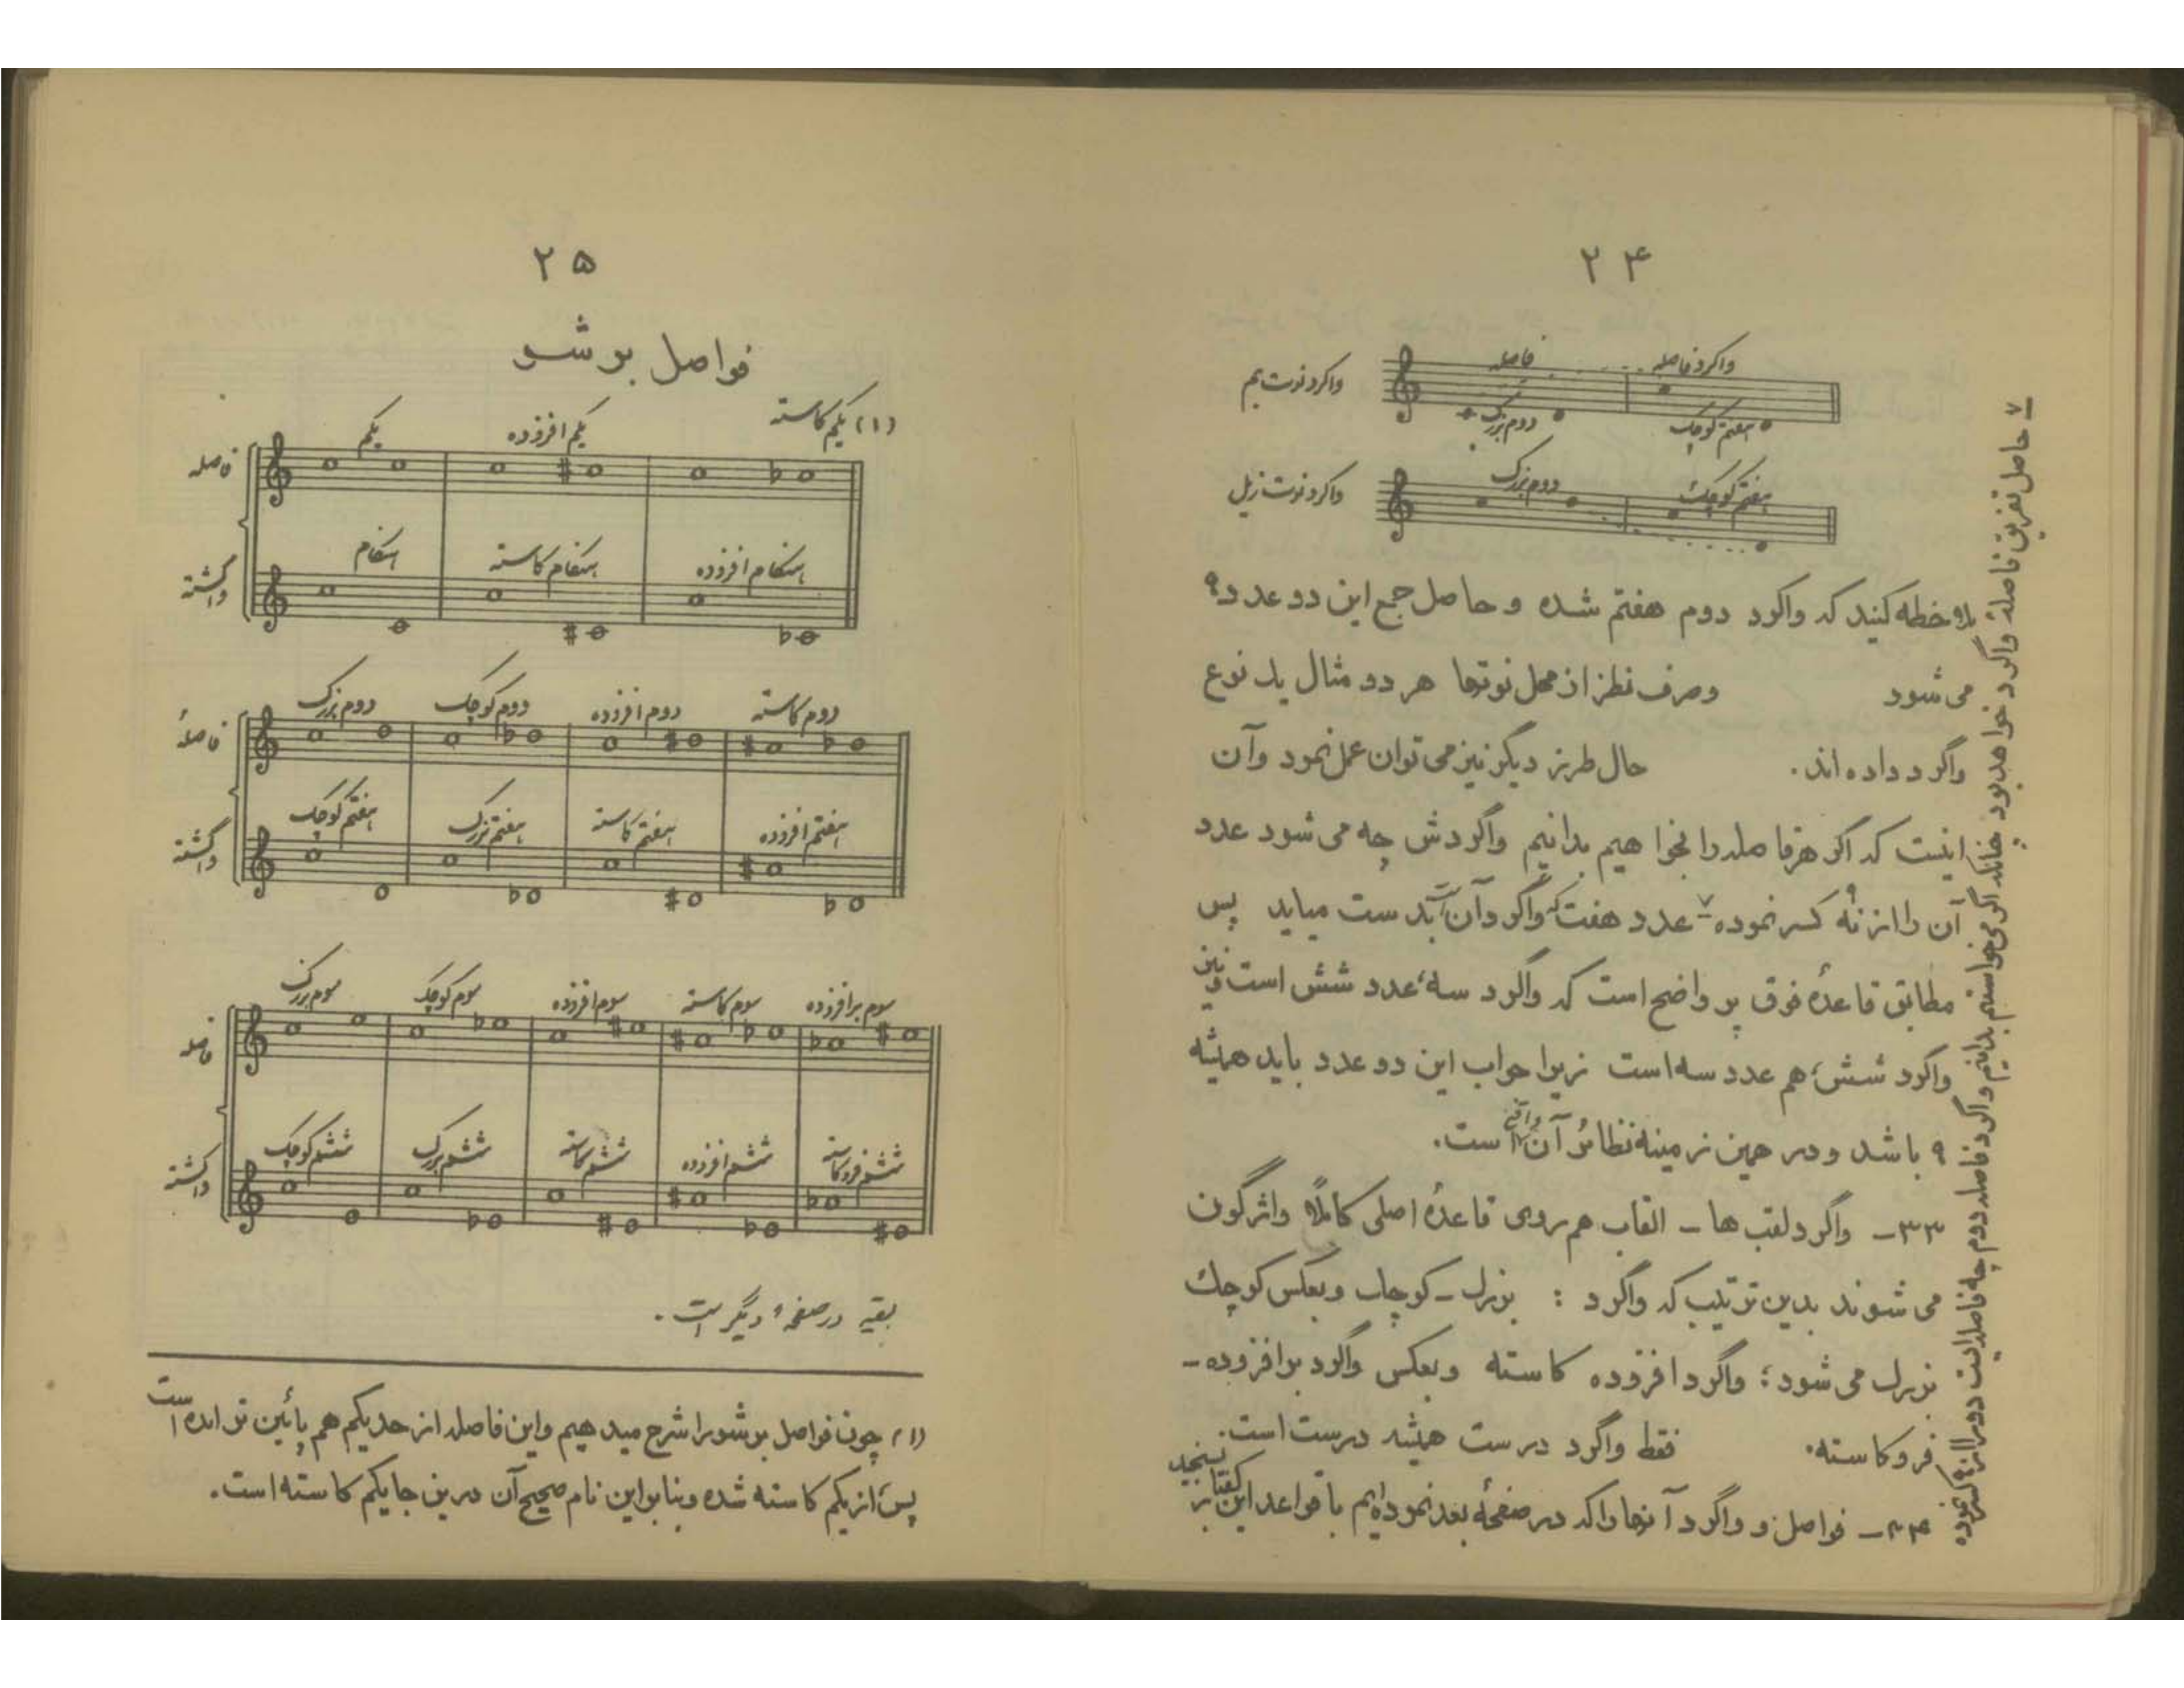 ۲۴
واگرد فاصله
فاصله
واگرد نوت بم
دوم بزرگ
هفتم کوچک
واگرد نوت زیل
دوم بزرگ
هفتم کوچک
ملاحظه کنید که واگرد دوم هفتم شده و حاصل جمع این دو عدد ۹
می شود وصرف نظر از محل نوتها هر دو مثال یک نوع
واگرد داده اند. حال طرز دیگر نیز می توان عمل نمود وآن
اینست که اگر هر فاصله را بخواهیم بدانیم واگردش چه می شود عدد
آن را از نُه کسر نموده ۷ عدد هفت که واگرد آن است بدست میاید پس
مطابق قاعدهٔ فوق پر واضح است که واگرد سه، عدد شش است و نیز
واگرد شش، هم عدد سه است زیرا جواب این دو عدد باید همیشه
۹ باشد و در همین زمینه نظائر آن واقع است.
۳۳- واگرد لقب ها - القاب هم روی قاعدهٔ اصلی کاملاً واژگون
می شوند بدین ترتیب که واگرد : بزرگ - کوچک وبعکس کوچک
بزرگ می شود؛ واگرد افزوده کاسته وبعکس واگرد برافزوده -
فروکاسته. فقط واگرد درست همیشه درست است.
۳۴- فواصل و واگرد آنها را که در صفحهٔ بعد نموده ایم با قواعد این گفتار بسنجید
۷ حاصل تفریق فاصله واگرد خواهد بود چنانکه اگر می خواستیم بدانیم واگرد فاصله دوم چه فاصله ایست دو را از ۹ کسر نموده
۲۵
فواصل بوشو
یکم
یکم افزوده
(۱) یکم کاسته
فاصله
هنگام
هنگام کاسته
هنگام افزوده
واگشته
دوم بزرگ
دوم کوچک
دوم افزوده
دوم کاسته
فاصلهٔ
هفتم کوچک
هفتم بزرگ
هفتم کاسته
هفتم افزوده
واگشته
سوم بزرگ
سوم کوچک
سوم افزوده
سوم کاسته
سوم برافزوده
فاصله
ششم کوچک
ششم بزرگ
ششم کاسته
ششم افزوده
ششم فروکاسته
واگشته
بقیه در صفحهٔ دیگر است.
(۱) چون فواصل بوشو را شرح میدهیم واین فاصله از حد یکم هم پائین تر آمده است
پس از یکم کاسته شده وبنابراین نام صحیح آن درین جا یکم کاسته است.